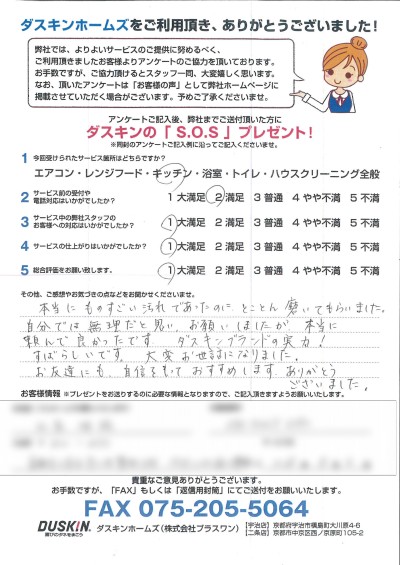 ダスキンホームズをご利用頂き、ありがとうございました！
弊社では、よりよいサービスのご提供に努めるべく、
ご利用頂きましたお客様よりアンケートのご協力を頂いております。
お手数ですが、ご協力頂けるとスタッフ一同、大変嬉しく思います。
なお、頂いたアンケートは「お客様の声」として弊社ホームページに
掲載させていただく場合がございます。予めご了承くださいませ。
アンケートご記入後、弊社までご送付頂いた方に
ダスキンの「 S.O.S 」プレゼント！
※同封のアンケートご記入例に沿ってご記入くださいませ。
1 今回受けられたサービス箇所はどちらですか？
エアコン・レンジフード・キッチン・浴室・トイレ・ハウスクリーニング全般
2 サービス前の受付や
電話対応はいかがでしたか？ 1 大満足 2 満足 3 普通 4 やや不満 5 不満
3 サービス中の弊社スタッフの
お客様への対応はいかがでしたか？ 1 大満足 2 満足 3 普通 4 やや不満 5 不満
4 サービスの仕上がりはいかがでしたか？ 1 大満足 2 満足 3 普通 4 やや不満 5 不満
5 総合評価をお願い致します。 1 大満足 2 満足 3 普通 4 やや不満 5 不満
その他、ご感想やお気づきの点などをお聞かせくださいませ。
本当に ものすごい汚れであったのに、とことん 磨いてもらいました。
自分では無理だと思い、お願いしましたが、本当に
頼んで良かったです。 ダスキンブランドの実力！
すばらしいです。 大変お世話になりました。
お友達にも、自信をもっておすすめします。ありがとう
ございました。
お客様情報 ※プレゼントをお送りするのに必要な情報となりますので、ご記入頂きますようお願いいたします。
貴重なご意見ありがとうございます。
お手数ですが、「FAX」もしくは「返信用封筒」にてご送付をお願いいたします。
FAX 075-205-5064
DUSKIN
喜びのタネをまこう
ダスキンホームズ（株式会社プラスワン）
【宇治店】京都府宇治市槇島町大川原4-6
【二条店】京都市中京区西ノ京原町105-2